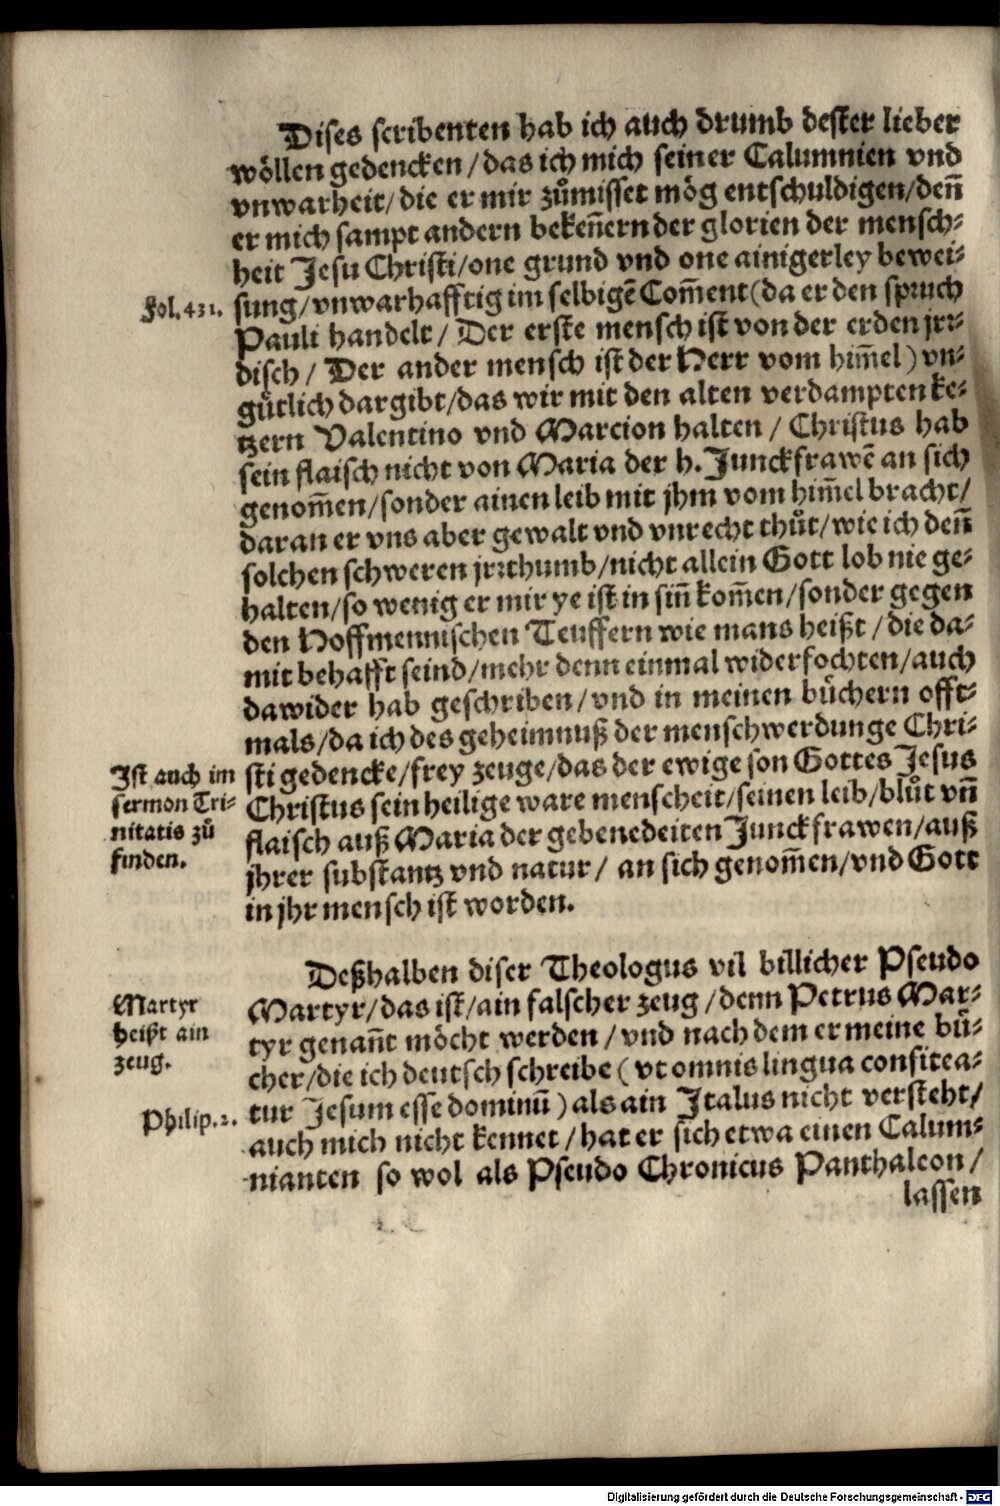 Dises scribenten hab ich auch drumb dester lieber
wöllen gedencken/das ich mich seiner Calumnien vnd
vnwarheit/die er mir zůmisset mög entschuldigen/deñ
er mich sampt andern bekeñern der glorien der mensch-
heit Jesu Christi/one grund vnd one ainigerley bewei-
Fol.431.
sung/vnwarhafftig im selbigē Com̄ent(da er den spruch
Pauli handelt/Der erste mensch ist von der erden jrr-
disch/Der ander mensch ist der Herr vom him̄el) vn-
gůtlich dargibt/das wir mit den alten verdampten ke-
tzern Valentino vnd Marcion halten/Christus hab
sein flaisch nicht von Maria der h. Junckfrawē an sich
genom̄en/sonder ainen leib mit jhm vom him̄el bracht/
daran er vns aber gewalt vnd vnrecht thůt/wie ich deñ
solchen schweren jrrthumb/nicht allein Gott lob nie ge-
halten/so wenig er mir ye ist in siñ kom̄en/sonder gegen
den Hoffmennischen Teuffern wie mans heißt/die da-
mit behafft seind/mehr denn einmal widerfochten/auch
dawider hab geschriben/vnd in meinen bůchern offt-
mals/da ich des geheimnuß der menschwerdunge Chri-
Ist auch im
sermon Tri-
nitatis zů
finden.
sti gedencke/frey zeuge/das der ewige son Gottes Jesus
Christus sein heilige ware menscheit/seinen leib/blůt vñ
flaisch auß Maria der gebenedeiten Junckfrawen/auß
jhrer substantz vnd natur/an sich genom̄en/vnd Gott
in jhr mensch ist worden.
Deßhalben diser Theologus vil billicher Pseudo
Martyr
heißt ain
zeug.
Martyr/das ist/ain falscher zeug/denn Petrus Mar-
tyr genañt möcht werden/vnd nach dem er meine bů-
cher/die ich deutsch schreibe (vt omnis lingua confitea-
Philip.2.
tur Jesum esse dominū) als ain Italus nicht versteht/
auch mich nicht kennet/hat er sich etwa einen Calum-
nianten so wol als Pseudo Chronicus Panthaleon/
lassen
Digitalisierung gefördert durch die Deutsche Forschungsgemeinschaft - DFG